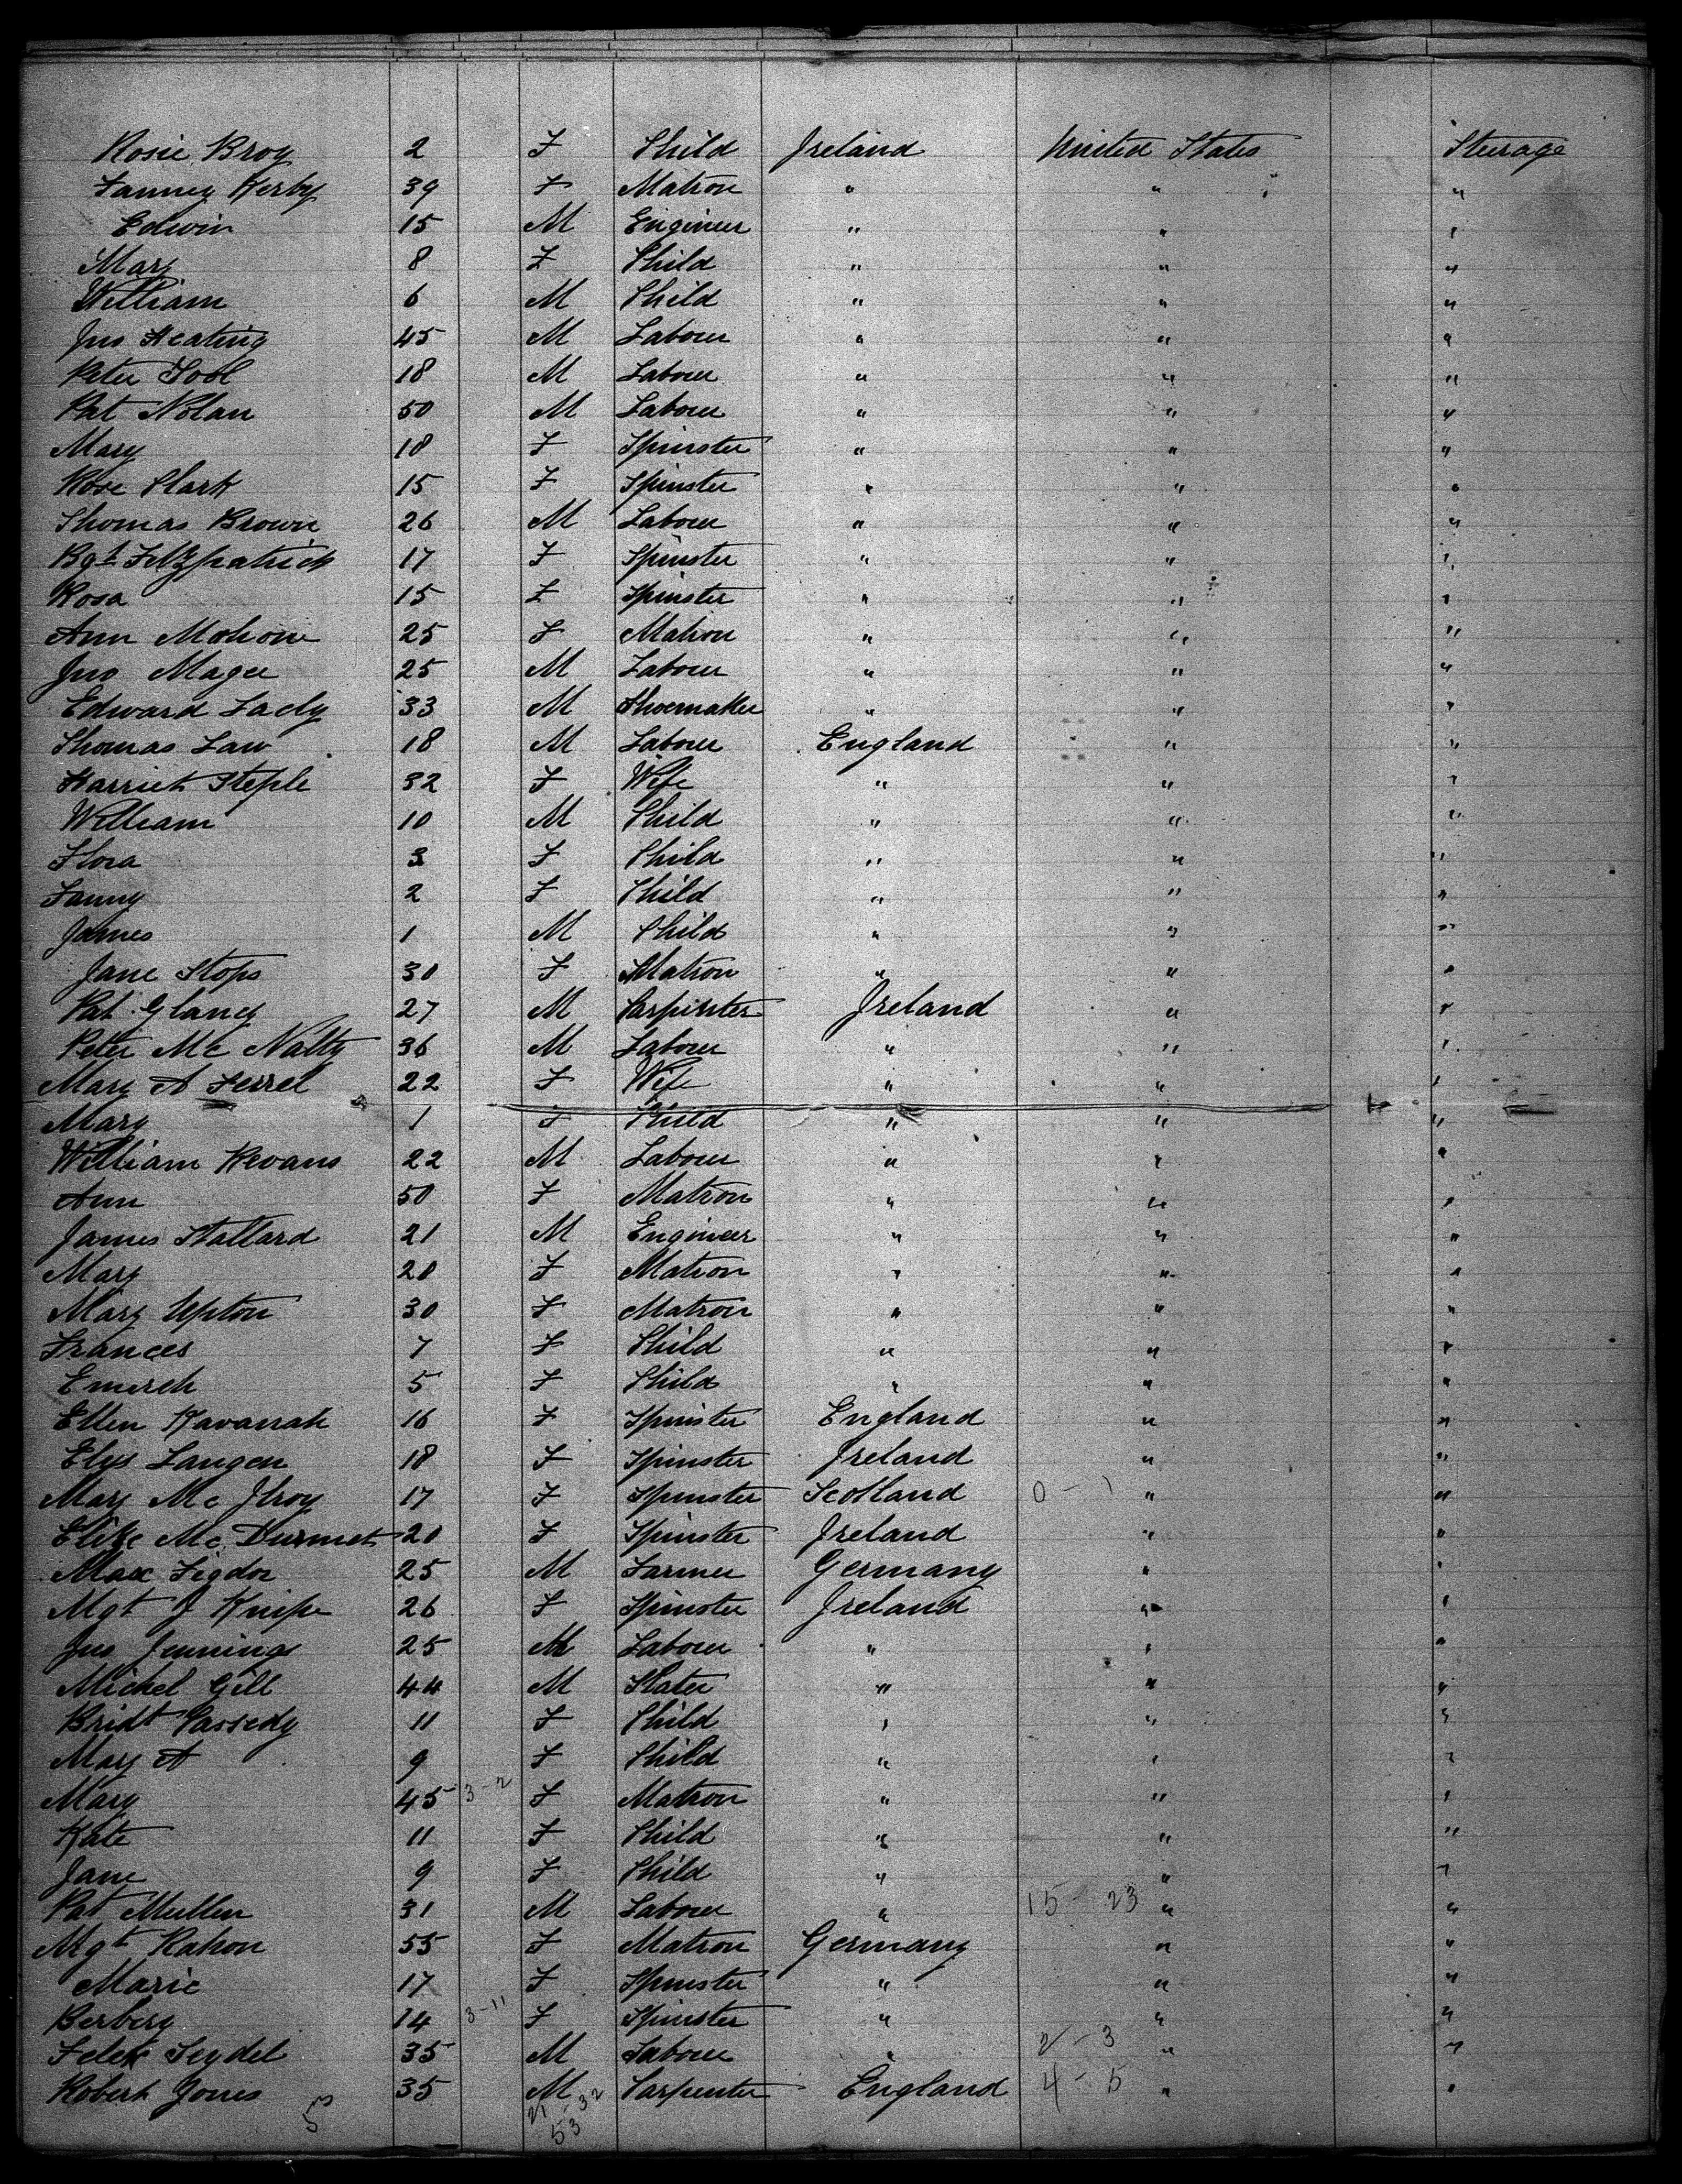 Rosie Broy 2 F Child Ireland United States Steerage
Fanney Kerby 39 F Matron " " "
Edwin 15 M Engineer " " "
Mary 8 F Child " " "
William 6 M Child " " "
Jno Keating 45 M Labour " " "
Peter Tool 18 M Labour " " "
Pat Nolan 50 M Labour " " "
Mary 18 F Spinster " " "
Rose Clark 15 F Spinster " " "
Thomas Brown 26 M Labour " " "
Bgt Fitzpatrick 17 F Spinster " " "
Rosa 15 F Spinster " " "
Ann Mohone 25 F Matron " " "
Jno Magee 25 M Labour " " "
Edward Lacly 33 M Shoemaker " " "
Thomas Law 18 M Labour England " "
Harriet Steple 32 F Wife " " "
William 10 M Child " " "
Flora 3 F Child " " "
Fanny 2 F Child " " "
James 1 M Child " " "
Jane Stops 30 F Matron " " "
Pat Glancy 27 M Carpinter Ireland " "
Peter Mc Nalty 36 M Labour " " "
Mary A Ferrel 22 F Wife " " "
Mary 1 F Child " " "
William Kevans 22 M Labour " " "
Ann 50 F Matron " " "
James Stallard 21 M Engineer " " "
Mary 20 F Matron " " "
Mary Upton 30 F Matron " " "
Frances 7 F Child " " "
5 F Child " " "
Ellen Kavanah 16 F Spinster England " "
Elys Langen 18 F Spinster Ireland " "
Mary Mc Ilroy 17 F Spinster Scotland 0 - 1 " "
Elise Mc Durmet 20 F Spinster Ireland " "
Max Figdor 25 M Farmer Germany " "
Mgt J Knipe 26 F Spinster Ireland " "
Jno Jennings 25 M Labour " " "
Michel Gill 44 M Slater " " "
Bridt Cassedy 11 F Child " " "
Mary A 9 F Child " " "
Mary 45 3-2 F Matron " " "
Kate 11 F Child " " "
Jane 9 F Child " " "
Pat Mullen 31 M Labour " 15 - 23 " "
Mgt Kahon 55 F Matron Germany " "
Marie 17 F Spinster " " "
Berbery 14 3-11 F Spinster " " "
Felex Seydel 35 M Labour " 2 - 3 " "
Robert Jones 35 M Carpenter England 4 - 5 " "
21 - 32
53